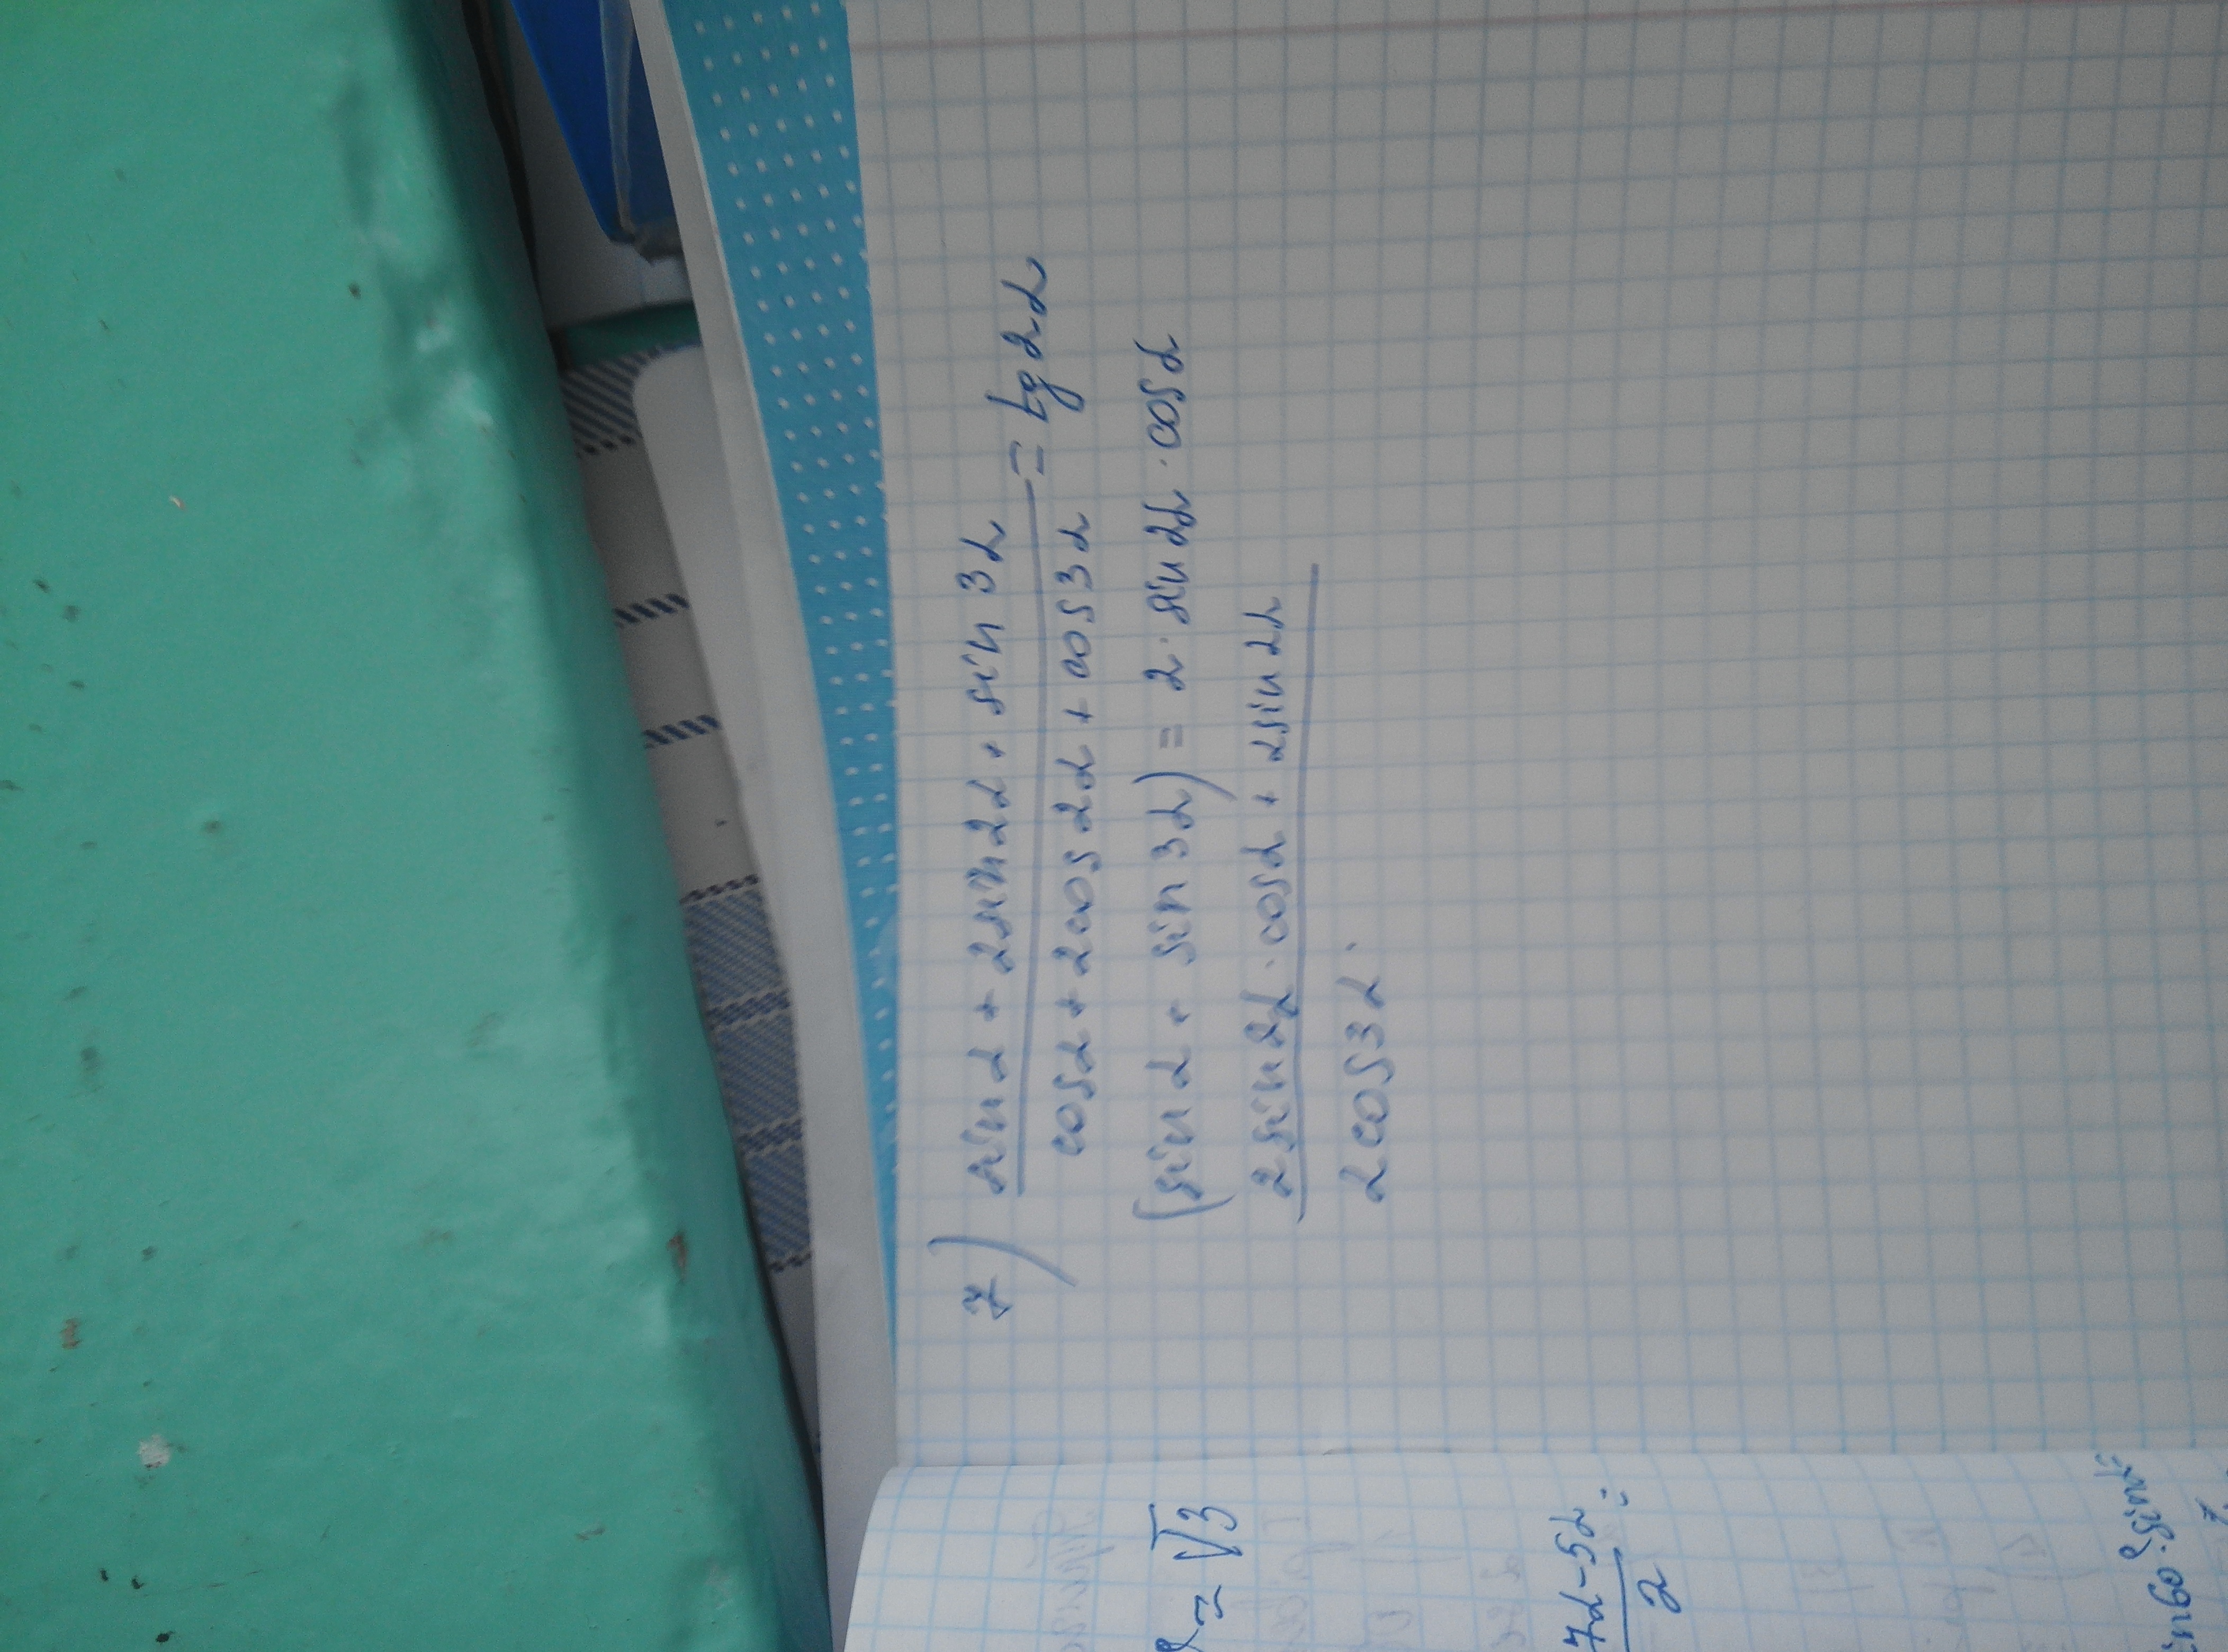 7) sin α + 2sin 2α + sin 3α = tg 2α
cos α + 2cos 2α + cos 3α
(sin α + sin 3α) = 2 · sin 2α · cos α
2 sin 2α · cos α + 2sin 2α
2cos 3α ·
= √3
7α - 5α =
2